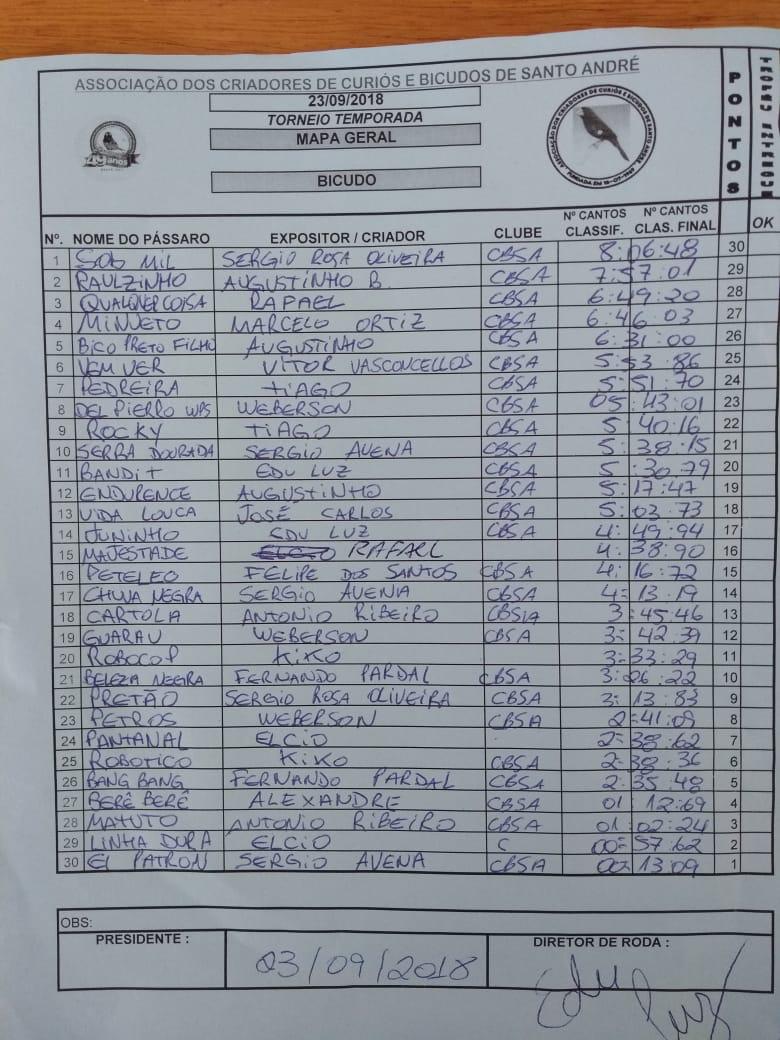 ASSOCIAÇÃO DOS CRIADORES DE CURIÓS E BICUDOS DE SANTO ANDRÉ
23/09/2018
TORNEIO TEMPORADA
MAPA GERAL
BICUDO
49 anos
ASSOCIAÇÃO DOS CRIADORES DE CURIÓS E BICUDOS DE SANTO ANDRÉ
PONTOS
Nº. NOME DO PÁSSARO EXPOSITOR / CRIADOR CLUBE Nº CANTOS CLASSIF. Nº CANTOS CLAS. FINAL OK
1 SOB MIL SERGIO ROSA OLIVEIRA CBSA 8:06:48 30
2 RAULZINHO AUGUSTINHO B. CBSA 7:57:01 29
3 QUALQUER COISA RAFAEL CBSA 6:49:20 28
4 MINUETO MARCELO ORTIZ CBSA 6:46:03 27
5 BICO PRETO FILHO AUGUSTINHO CBSA 6:31:00 26
6 VEM VER VITOR VASCONCELLOS CBSA 5:53:86 25
7 PEDREIRA TIAGO CBSA 5:51:70 24
8 DEL PIERRO WPS WEBERSON CBSA 05:43:01 23
9 ROCKY TIAGO CBSA 5:40:16 22
10 SERRA DOURADA SERGIO AVENA CBSA 5:38:15 21
11 BANDIT EDU LUZ CBSA 5:30:79 20
12 ENDURENCE AUGUSTINHO CBSA 5:17:47 19
13 VIDA LOUCA JOSÉ CARLOS CBSA 5:03:73 18
14 JUNINHO EDU LUZ CBSA 4:49:94 17
15 MAJESTADE RAFAEL 4:38:90 16
16 PETELEO FELIPE DOS SANTOS CBSA 4:16:72 15
17 CHUVA NEGRA SERGIO AVENIA CBSA 4:13:19 14
18 CARTOLA ANTONIO RIBEIRO CBSA 3:45:46 13
19 GUARAU WEBERSON CBSA 3:42:39 12
20 ROBOCOP KIKO 3:33:29 11
21 BELEZA NEGRA FERNANDO PARDAL CBSA 3:26:22 10
22 PRETÃO SERGIO ROSA OLIVEIRA CBSA 3:13:83 9
23 PETROS WEBERSON CBSA 2:41:09 8
24 PANTANAL ELCIO 2:38:62 7
25 ROBOTICO KIKO CBSA 2:38:36 6
26 BANG BANG FERNANDO PARDAL CBSA 2:35:48 5
27 BERÊ BERÊ ALEXANDRE CBSA 01:12:69 4
28 MATUTO ANTONIO RIBEIRO CBSA 01:02:24 3
29 LINHA DURA ELCIO C 00:57:62 2
30 EL PATRON SERGIO AVENA CBSA 00:13:09 1
OBS:
PRESIDENTE : DIRETOR DE RODA :
03/09/2018
Edu Luz